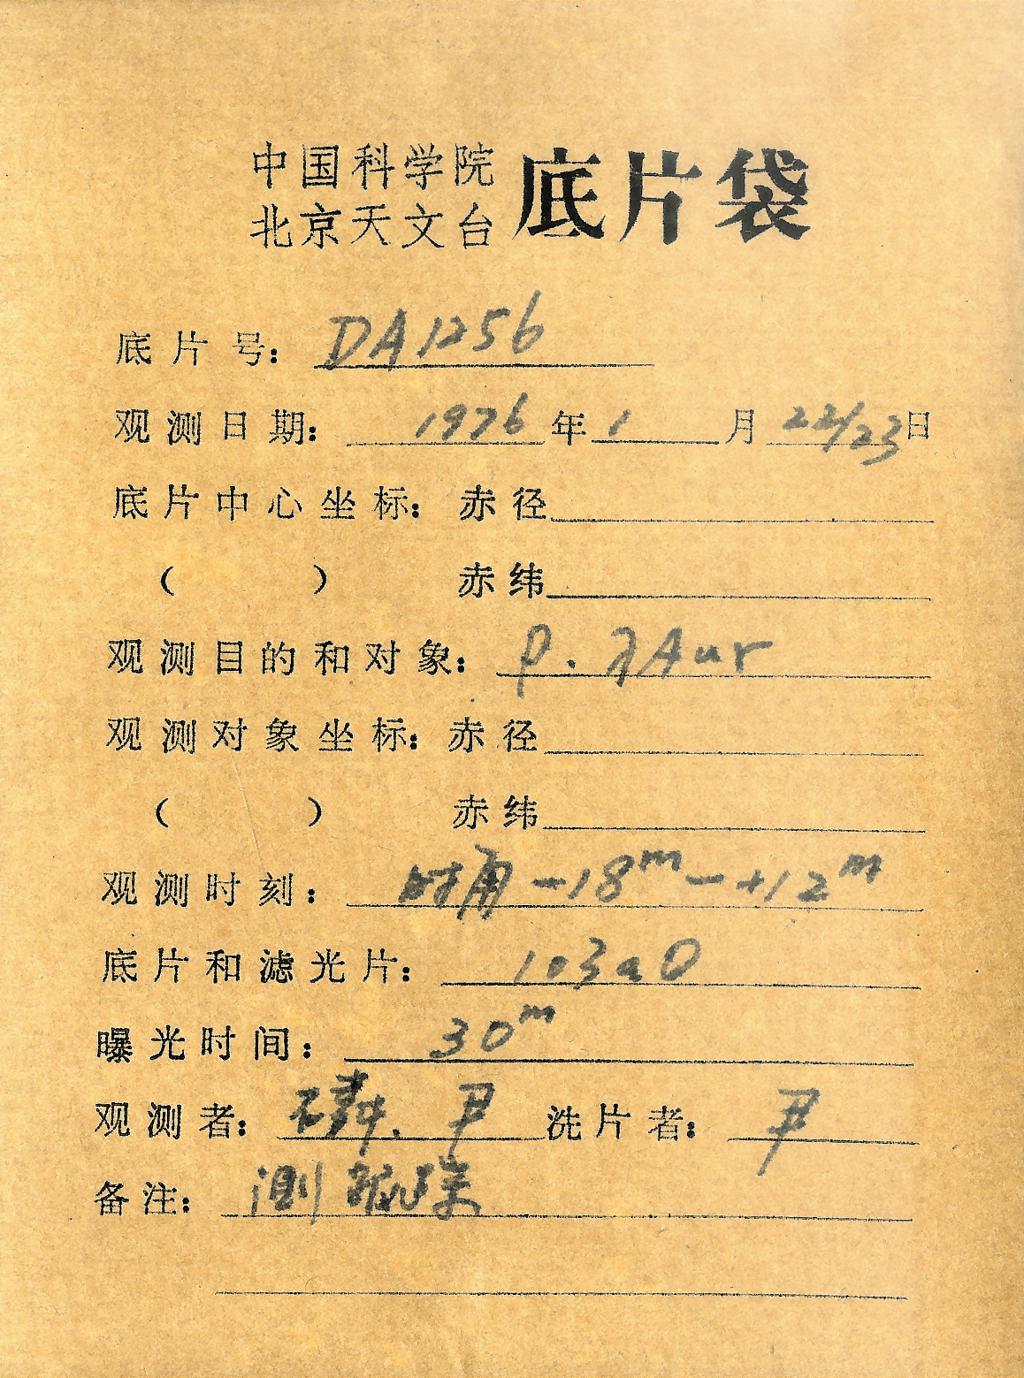 中国科学院
北京天文台 底片袋
底片号: DA1256
观测日期: 1976年1月22/23日
底片中心坐标: 赤径
( ) 赤纬
观测目的和对象: ρ. λAur
观测对象坐标: 赤径
( ) 赤纬
观测时刻: 时角 -18ᵐ - +12ᵐ
底片和滤光片: 103aO
曝光时间: 30ᵐ
观测者: 尹 洗片者: 尹
备注: 测跟踪